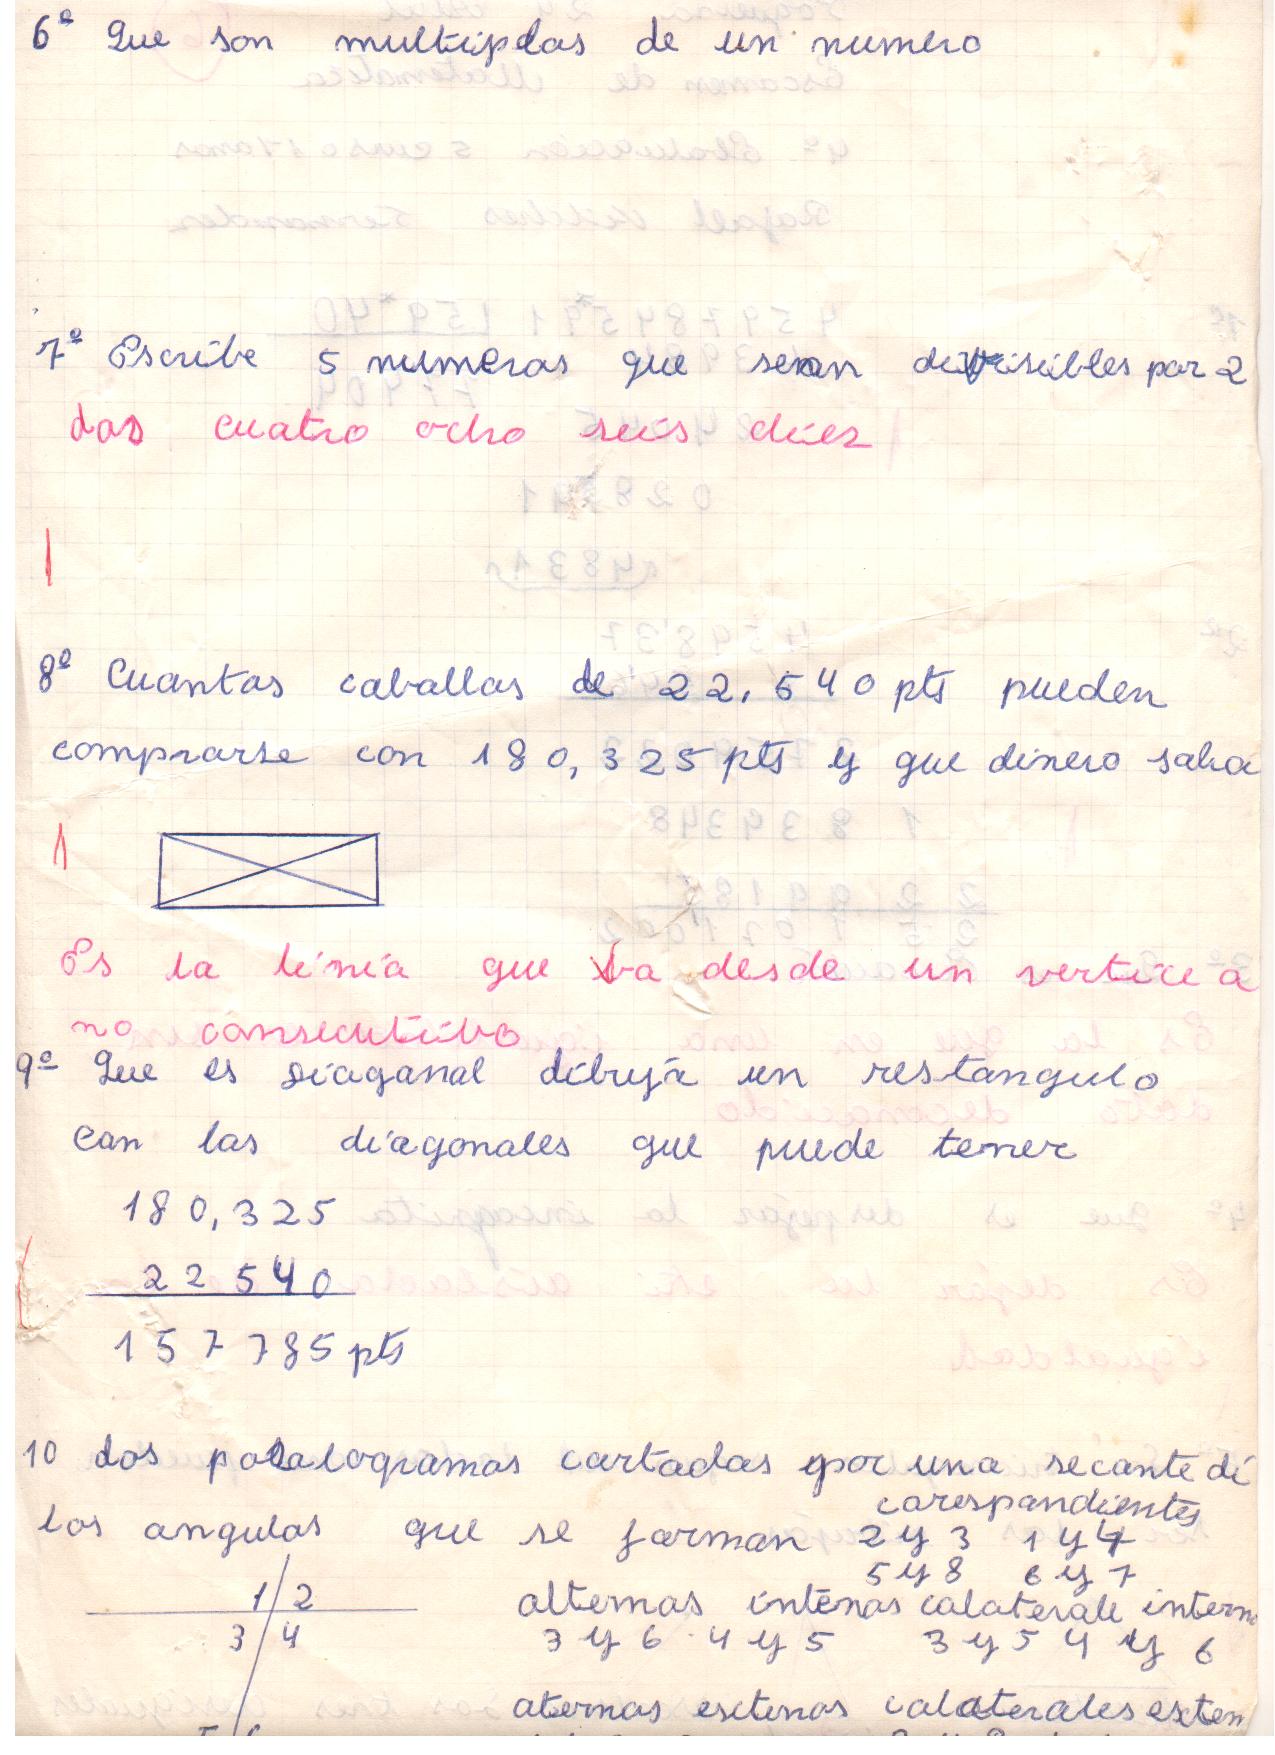 6º Que son multiplos de un numero
7º Escribe 5 numeros que sean divisibles por 2
dos cuatro ocho seis diez
8º Cuantos caballos de 22.540 pts pueden
comprarse con 180,325 pts y que dinero sobra
Es la linia que ba desde un vertice a
no consecutibo
9º Que es diagonal dibuja un restangulo
con las diagonales que puede tener
180,325
22540
157785 pts
10 dos paralogramos cortados por una secante di
corespondientes
los angulos que se forman 2 y 3 1 y 4
5 y 8 6 y 7
1 2
alternos intenos colaterale intern
3 4
3 y 6 4 y 5 3 y 5 4 y 6
aternos extenos colaterales exten